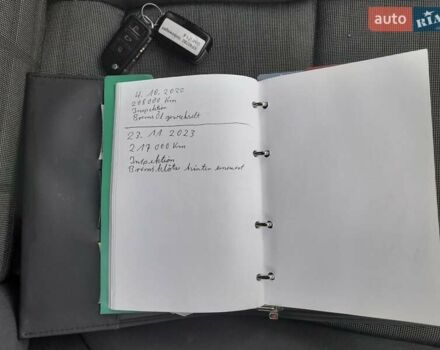 auto RIA
4. 10. 2020
206000 Km
Inspektion
Brems Öl gewechselt
23. 11. 2023
217 000 Km
Inspektion
Bremsklötze hinten erneuert